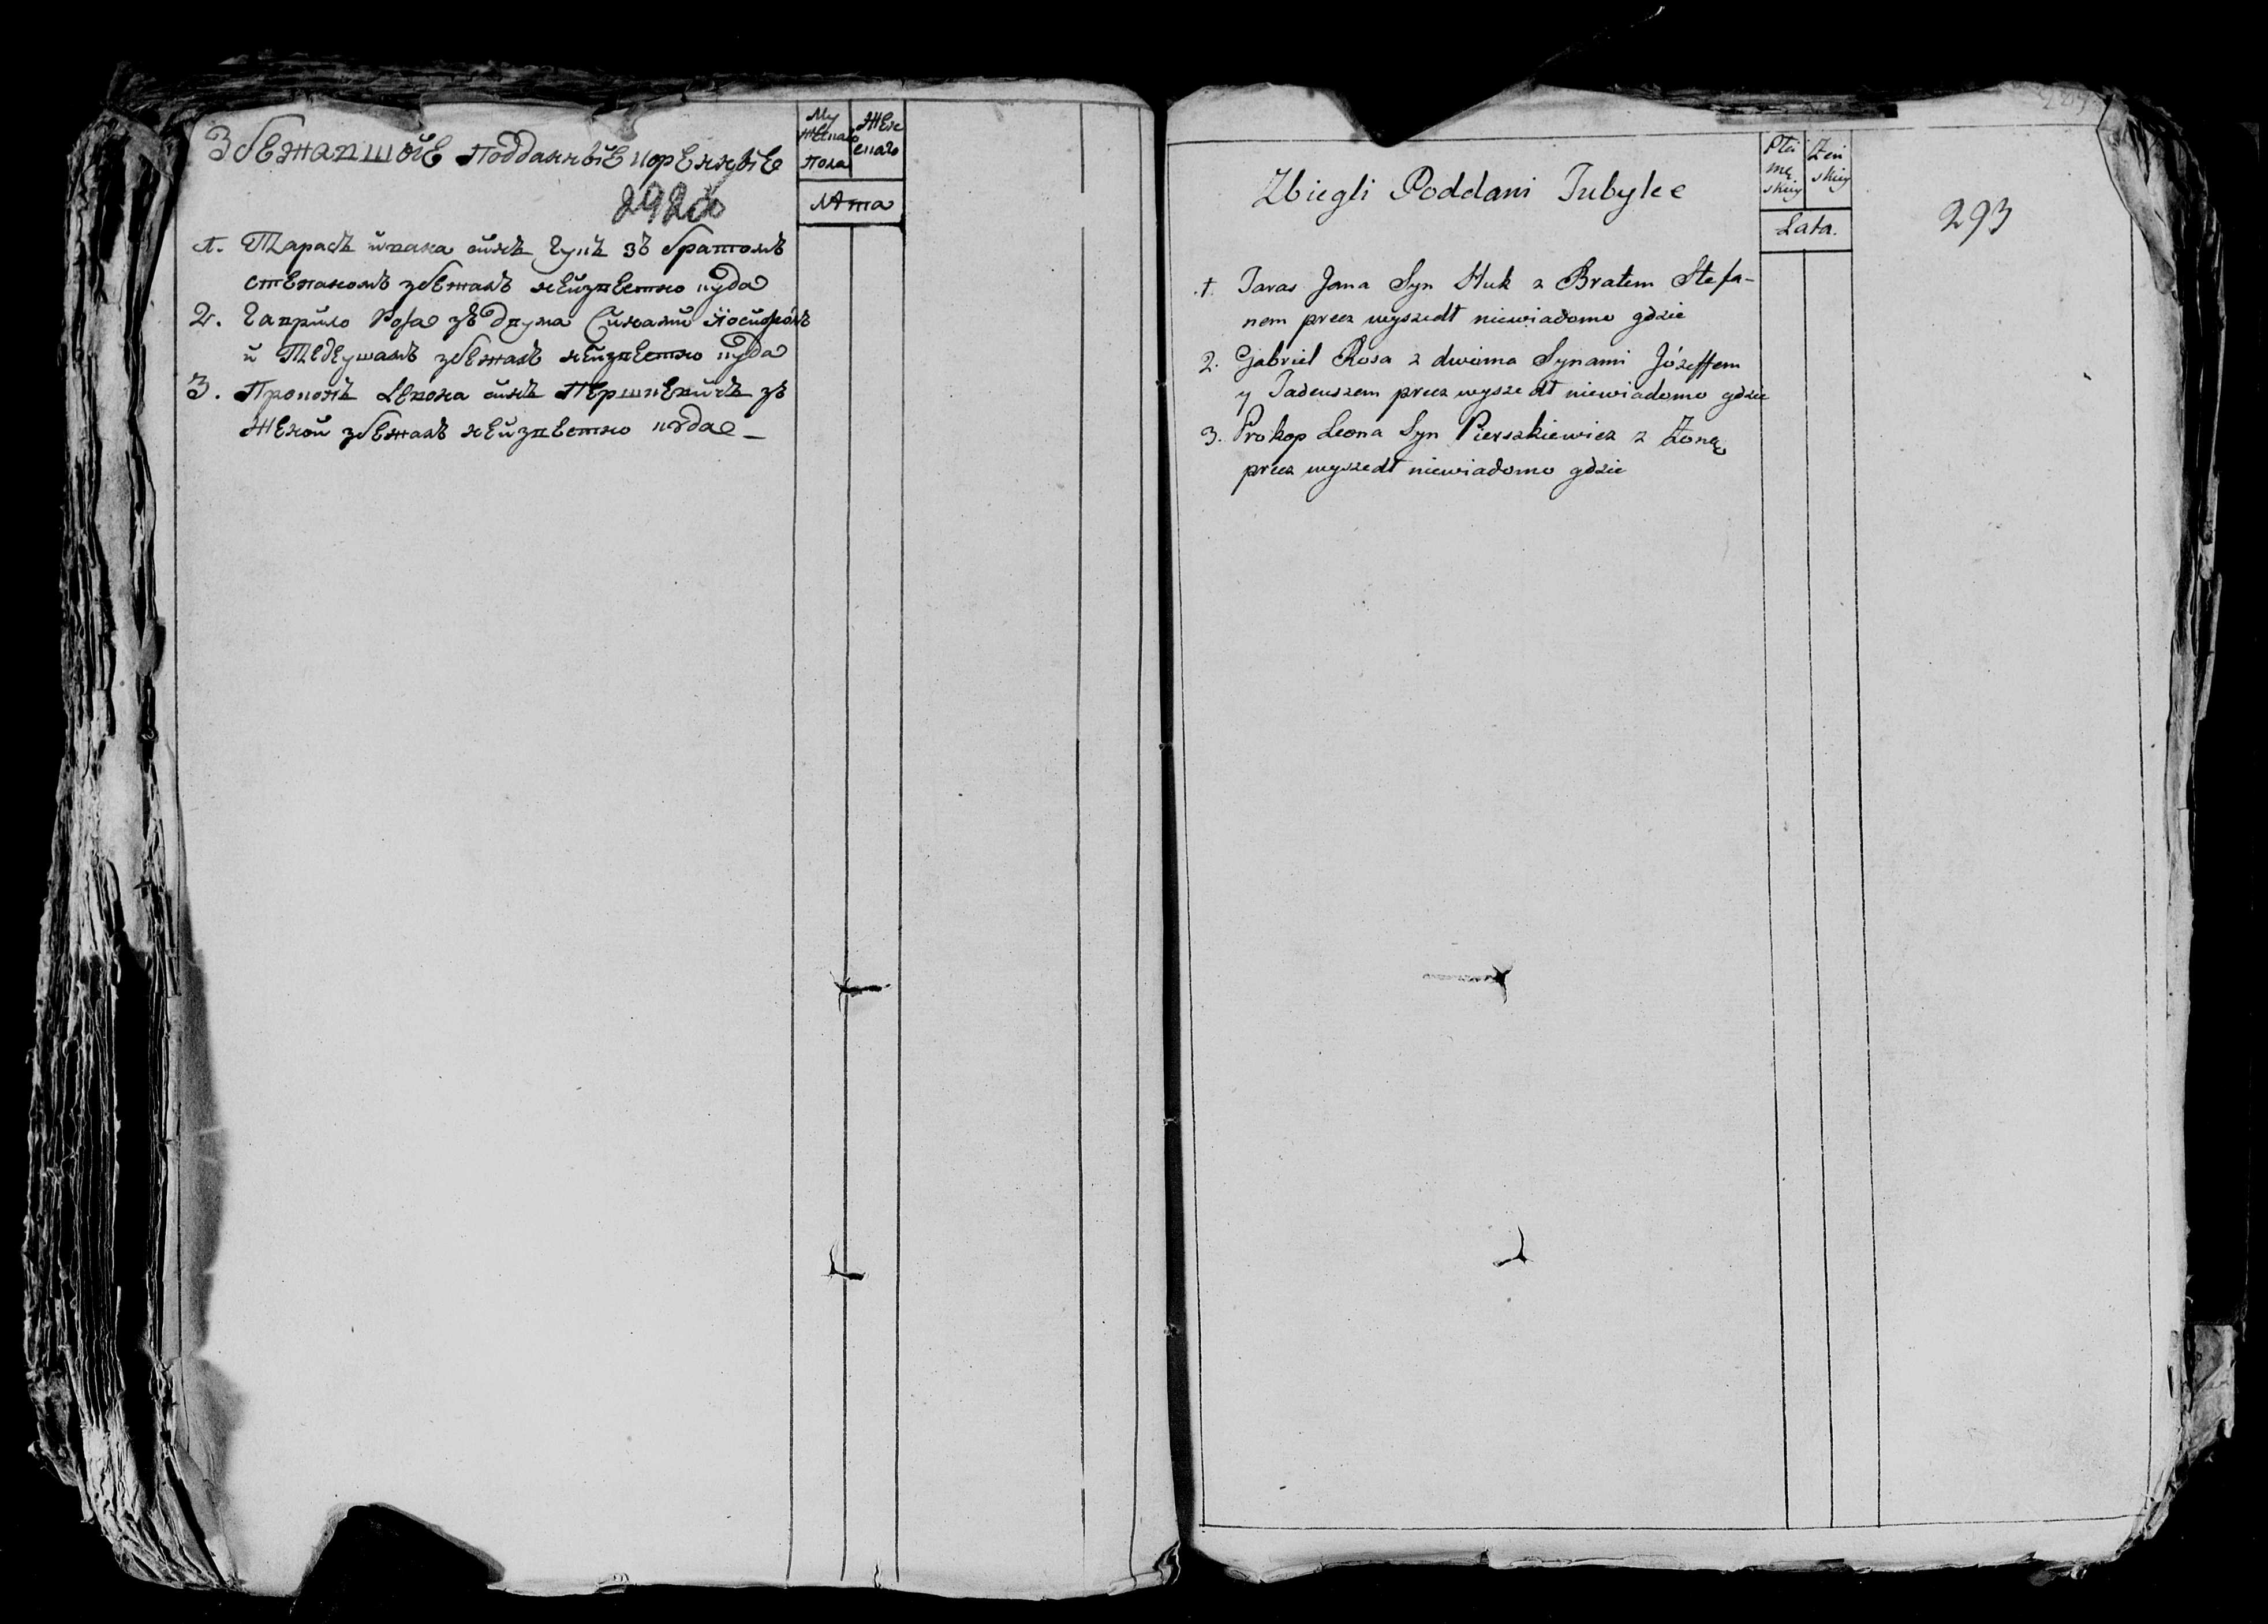 Збежавшые подданные коренные
292
Му
жескаго
пола
Жен
скаго
Лѣта
1. Тарасъ ивана синъ Гукъ зъ братомъ
степаномъ збежалъ неизвестно куда
2. Гаврило Роса зъ двума Синами Иосифомъ
и Тадеушамъ збежалъ неизвестно куда
3. Прокопъ Левона синъ Першкевичъ зъ
Женой збежалъ неизвестно куда
Zbiegli Poddani Tubylce
Płci
mę
skiey
Żeń
skiey
Lata.
293
1. Taras Jana Syn Huk z Bratem Stefa-
nem precz wyszedł niewiadomo gdzie
2. Gabriel Rosa z dwóma Synami Józeffem
y Tadeuszem precz wyszedł niewiadomo gdzie
3. Prokop Leona Syn Pierszkiewicz z Żoną
precz wyszedł niewiadomo gdzie